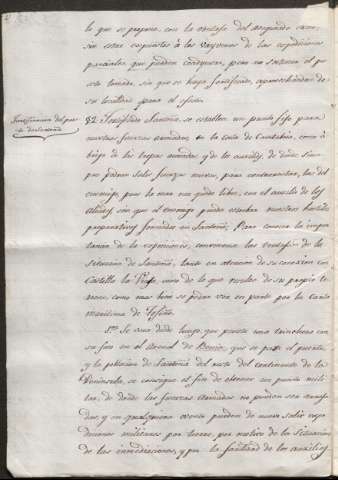 lo que se propone, con la ventaja del segundo caso,
sin estar expuestos á los vayvenes de las expediciones
parciales que pueden conducirse, pero no sostener el pu
esto tomado, sin que se haya fortificado, aprovechándose de
su localidad para el efecto.
Fortificacion del puer
to de Santoña
82 Fortificado Santoña, se establece un punto fijo para
nuestras fuerzas armadas, en la costa de Cantabria, como a
brigo de las tropas armadas, y de los auxilios, de donde siem
pre podran salir fuerzas nuevas, para contrarrestar, las del
enemigo, por la mar nos quede libre, con el auxilio de los
Aliados sin que el enemigo pueda estorbar nuestras hostiles
preparativos formados en Santoña. Para conocer la impor
tancia de la
situacion de Santoña, tanto en atencion de su conexion con
Castilla la Vieja, como de lo que resulta de su propio te
rreno, como mas bien se podran ver en parte por la Carta
maritima de Tofiño.
1º Se verá desde luego, que puesta una trinchera con
su foso en el Arenal de Berria, que se pase el puente,
y la poblacion de Santoña del resto del continente de la
Peninsula, se consigue el fin de obtener un punto mili
tar, de donde las fuerzas armadas no pueden ser arroja
das, y en qualquiera evento pueden de nuevo salir expe
diciones militares por tierra, por motivo de la situacion
de las inmediaciones, y por la facilidad de los auxilios